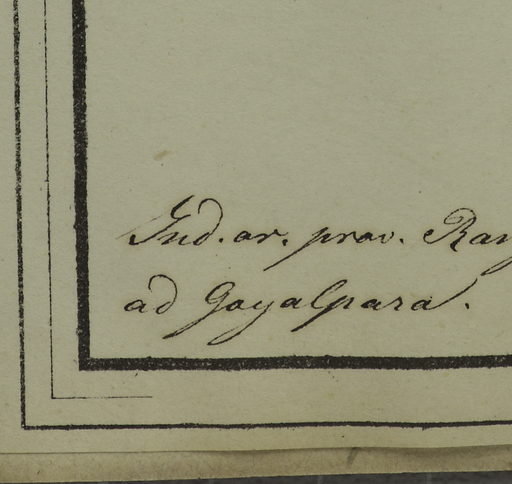 Ind. or. prov. Rang
ad Goyalpara.